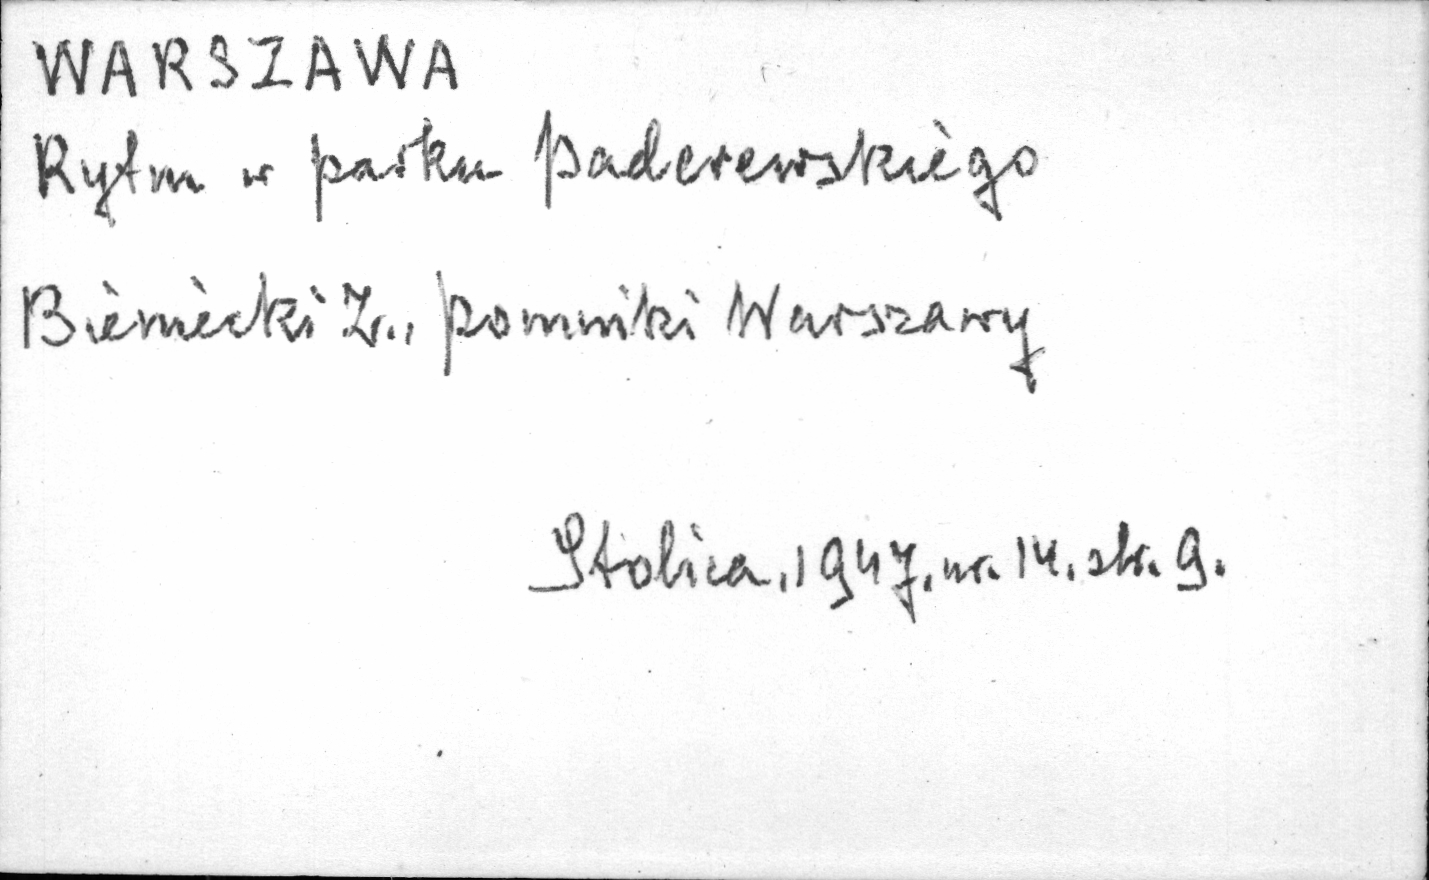 WARSZAWA
Rytm w parku Paderewskiego
Bieniecki Z., Pomniki Warszawy
Stolica, 1947, nr. 14. str. 9.